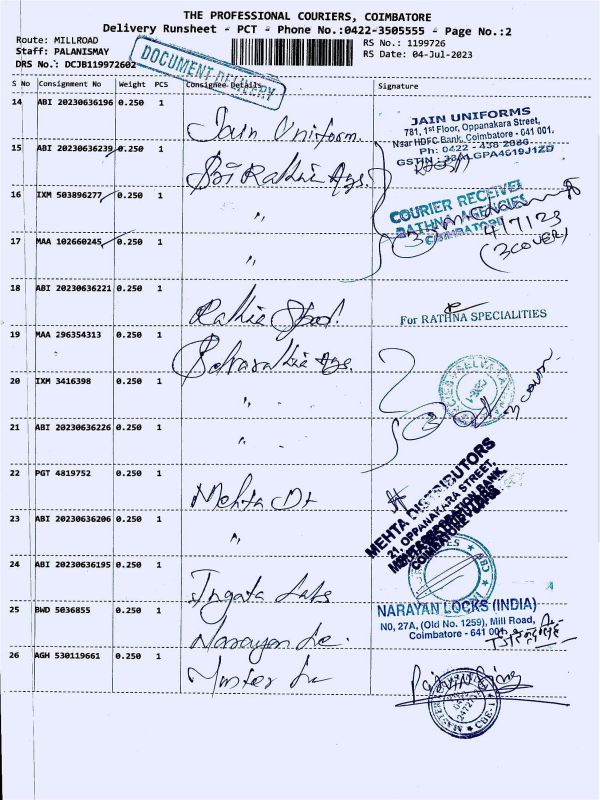 THE PROFESSIONAL COURIERS, COIMBATORE
Delivery Runsheet - PCT - Phone No.:0422-3505555 - Page No.:2
Route: MILLROAD
Staff: PALANISMAY
DRS No.: DCJB119972602
RS No.: 1199726
RS Date: 04-Jul-2023
DOCUMENT DELIVERY
S No Consignment No Weight PCS Consignee Details Signature
14 ABI 20230636196 0.250 1 Jain Uniform.
JAIN UNIFORMS
781, 1st Floor, Oppanakara Street,
Near HDFC Bank, Coimbatore - 641 001.
Ph: 0422 - 438 2086
15 ABI 20230636239 0.250 1 Sri Rathie Ags.
16 IXM 503896277 0.250 1 "
COURIER RECEIVED
RATHNA AGENCIES
COIMBATORE
4/7/23
(3 COVER)
17 MAA 102660245 0.250 1 "
18 ABI 20230636221 0.250 1
For RATHNA SPECIALITIES
19 MAA 296354313 0.250 1
20 IXM 3416398 0.250 1 "
21 ABI 20230636226 0.250 1 "
22 PGT 4819752 0.250 1 Mehta Dt
MEHTA DISTRIBUTORS
21, OPPANAKARA STREET,
23 ABI 20230636206 0.250 1 "
24 ABI 20230636195 0.250 1
25 BWD 5036855 0.250 1 Narayan Lo.
NARAYAN LOCKS (INDIA)
NO, 27A, (Old No. 1259), Mill Road,
Coimbatore - 641 001.
26 AGH 530119661 0.250 1 Master